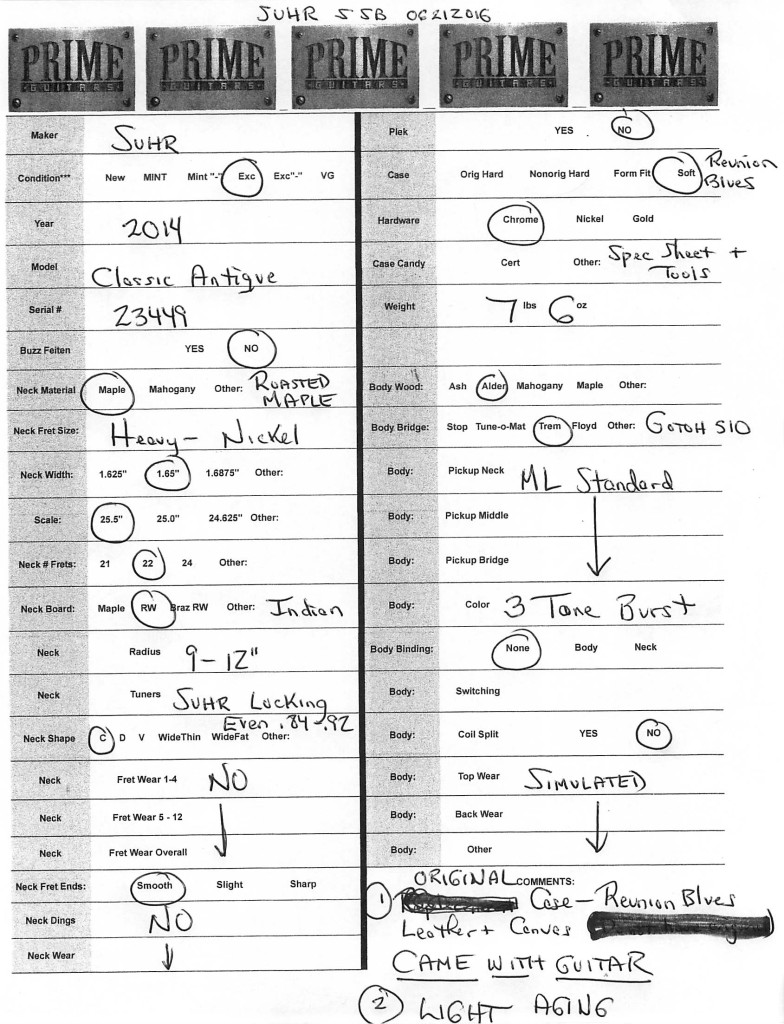 SUHR SSB 06212016
PRIME GUITARS PRIME GUITARS PRIME GUITARS PRIME GUITARS PRIME GUITARS
Maker SUHR
Condition*** New MINT Mint "-" Exc Exc"-" VG
Year 2014
Model Classic Antique
Serial # 23449
Buzz Feiten YES NO
Neck Material Maple Mahogany Other: ROASTED
MAPLE
Neck Fret Size: Heavy - Nickel
Neck Width: 1.625" 1.65" 1.6875" Other:
Scale: 25.5" 25.0" 24.625" Other:
Neck # Frets: 21 22 24 Other:
Neck Board: Maple RW Braz RW Other: Indian
Neck Radius 9-12"
Neck Tuners SUHR Locking
Even .84-.92
Neck Shape C D V WideThin WideFat Other:
Neck Fret Wear 1-4 NO
Neck Fret Wear 5 - 12
Neck Fret Wear Overall
Neck Fret Ends: Smooth Slight Sharp
Neck Dings NO
Neck Wear
Plek YES NO
Case Orig Hard Nonorig Hard Form Fit Soft Reunion
Blues
Hardware Chrome Nickel Gold
Case Candy Cert Other: Spec Sheet +
Tools
Weight 7 lbs 6 oz
Body Wood: Ash Alder Mahogany Maple Other:
Body Bridge: Stop Tune-o-Mat Trem Floyd Other: GOTOH 510
Body: Pickup Neck ML Standard
Body: Pickup Middle
Body: Pickup Bridge
Body: Color 3 Tone Burst
Body Binding: None Body Neck
Body: Switching
Body: Coil Split YES NO
Body: Top Wear SIMULATED
Body: Back Wear
Body: Other
ORIGINAL COMMENTS:
1 Case - Reunion Blues
Leather + Canvas
CAME WITH GUITAR
2 LIGHT AGING